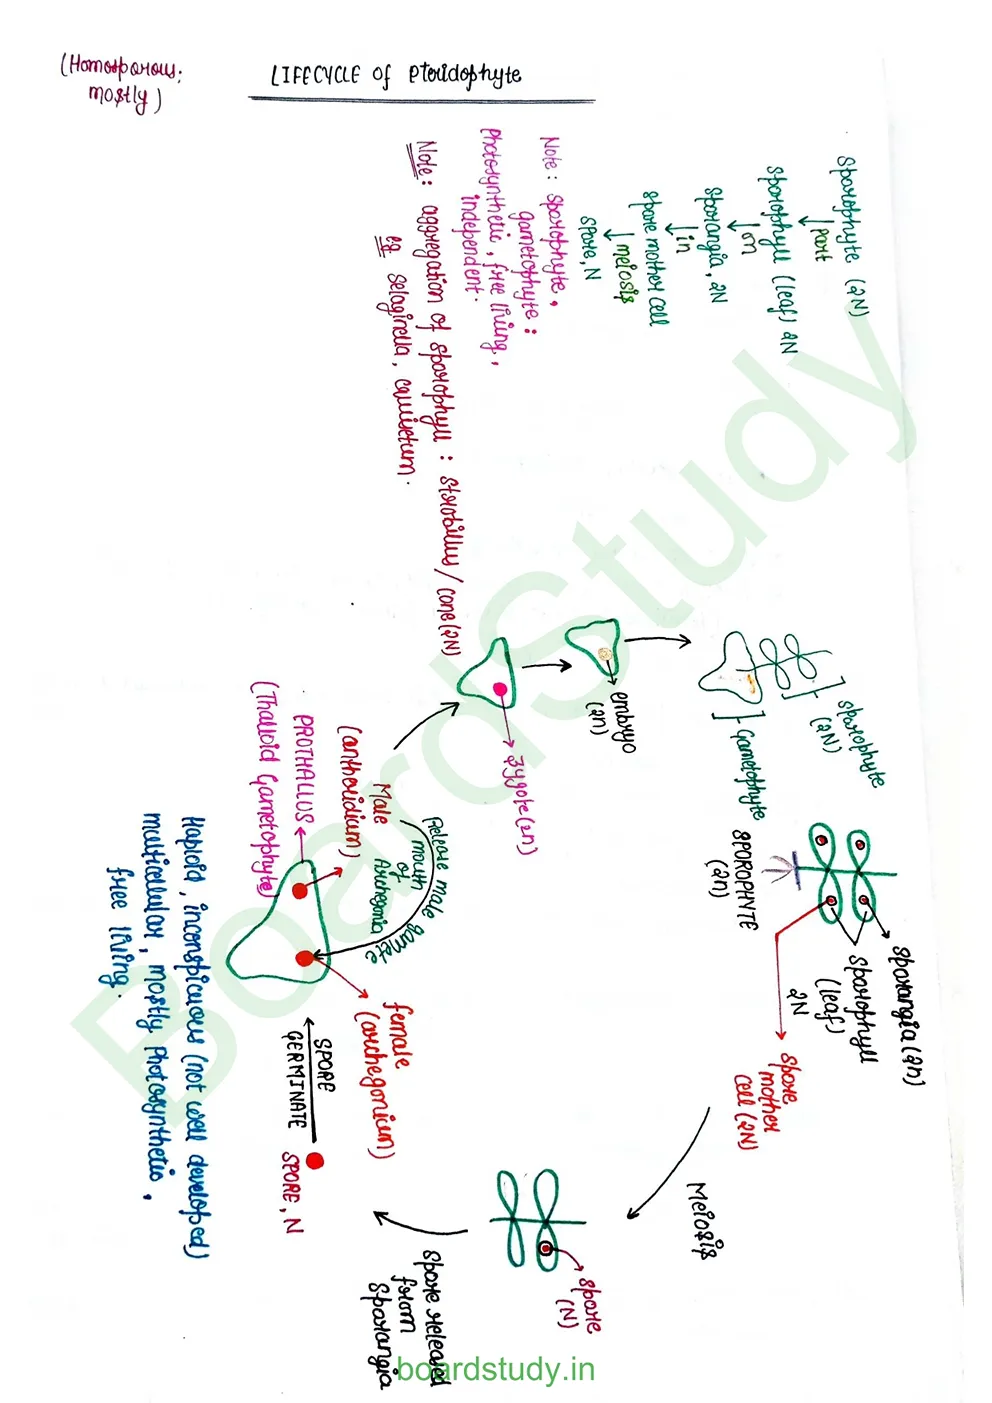 (Homosporous:
mostly)
LIFECYCLE of Pteridophyte
Sporophyte (2N)
part
sporophyll (leaf) 2N
on
sporangia, 2N
in
spore mother cell
meiosis
spore, N
Note: sporophyte,
gametophyte:
photosynthetic, free living,
independent.
Note: aggregation of sporophyll: strobillus/cone(2N)
eg selaginella, equisetum.
sporophyte
(2N)
Gametophyte
embryo
(2n)
zygote(2n)
SPOROPHYTE
(2n)
sporangia (2n)
sporophyll
(leaf)
2N
spore
mother
cell (2N)
Meiosis
spore
(N)
spore released
from
sporangia
SPORE, N
SPORE
GERMINATE
female
(archegonium)
Release male gamete
mouth
of
Archegonia
Male
(antheridium)
PROTHALLUS
(Thalloid Gametophyte)
Haploid, inconspicuous (not well developed)
multicellular, mostly photosynthetic,
free living.
BoardStudy
boardstudy.in